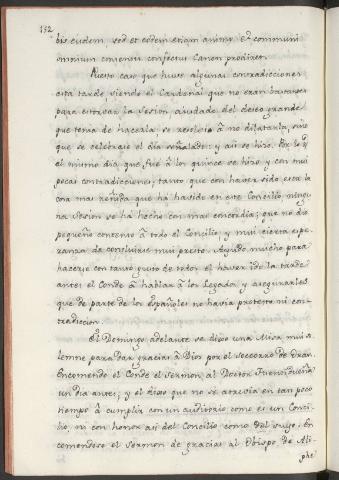 152
bis eiusdem, sed et eodem etiam animo, et communi
omnium consensu confectus Canon prodiret.
Puesto caso que huvo algunas contradicciones
esta tarde, viendo el Cardenal que no eran bastantes
para estorvar la sesion, ayudado del deseo grande
que tenia de hacerla, se resolvió á no dilatarla, sino
que se celebrase el dia señalado: y asi se hizo.
el mismo dia, que fué á los quince se hizo y con mui
pocas contradicciones, tanto que con haver sido esta la
cosa mas reñida que há havido en este Concilio, ningu
na sesion se há hecho con mas concordia, que no dio
pequeño contento á todo el Concilio y mui cierta espe
ranza de concluirse mui presto. Ayudó mucho para
hacerse con tanto gusto de todos el haver ido la tarde
antes el Conde á hablar á los Legados, y asegurarles
que de parte de los Españoles no havia protesta ni con
tradiccion.
El Domingo adelante se dixo una Misa mui so
lemne para dar gracias á Dios por el socorro de Oran.
Encomendo el Conde el sermon al Doctor Fuentidueña
un dia antes; y el dixo que no se atrevia en tan poco
tiempo á cumplir con un auditorio como es un Conci
lio, ni con honor asi del Concilio como del suyo. En
comendose el sermon de gracias al Obispo de Ali
phe